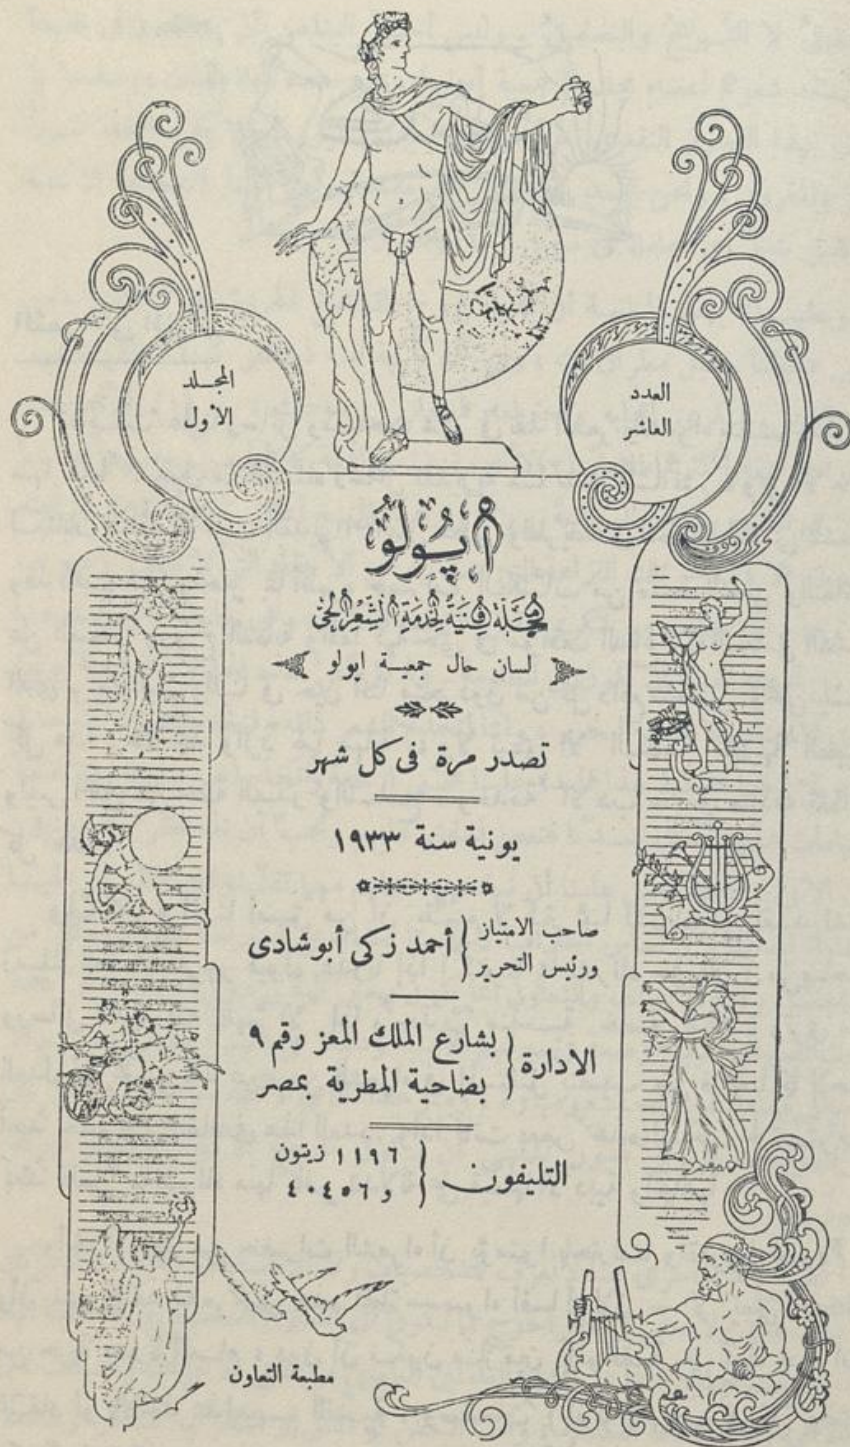 العدد
العاشر
المجلد
الأول
أپولو
مجلة فنية لخدمة الشعر الحي
لسان حال جمعية ابولو
تصدر مرة فى كل شهر
يونية سنة ١٩٣٣
صاحب الامتياز
ورئيس التحرير
أحمد زكى أبوشادى
الادارة
بشارع الملك المعز رقم ٩
بضاحية المطرية بمصر
التليفون
١١٩٦ زيتون
و ٤٠٤٥٦
مطبعة التعاون